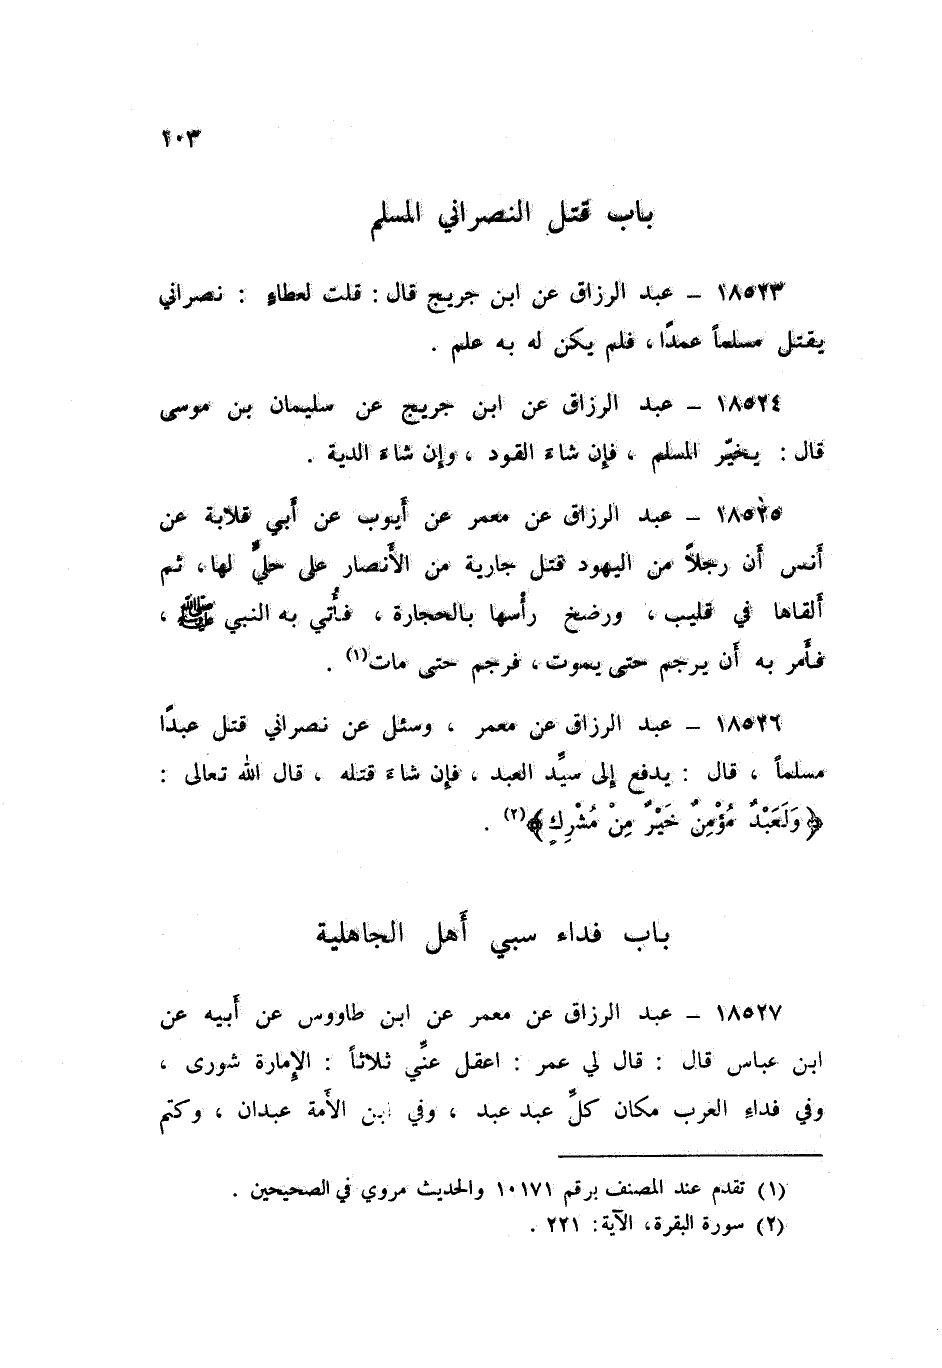 ١٠٣
باب قتل النصراني المسلم
١٨٥٢٣ – عبد الرزاق عن ابن جريج قال : قلت لعطاءٍ : نصراني
يقتل مسلماً عمدًا ، فلم يكن له به علم .
١٨٥٢٤ – عبد الرزاق عن ابن جريج عن سليمان بن موسى
قال : يخيّر المسلم ، فإن شاءَ القود ، وإن شاءَ الدية .
١٨٥٢٥ – عبد الرزاق عن معمر عن أيوب عن أبي قلابة عن
أنس أن رجلاً من اليهود قتل جارية من الأنصار على حليٍّ لها ، ثم
ألقاها في قليب ، ورضخ رأسها بالحجارة ، فأُتي به النبي ﷺ ،
فأمر به أن يرجم حتى يموت ، فرجم حتى مات(١) .
١٨٥٢٦ – عبد الرزاق عن معمر ، وسئل عن نصراني قتل عبدًا
مسلماً ، قال : يدفع إلى سيِّد العبد ، فإن شاءَ قتله ، قال الله تعالى :
﴿وَلَعَبْدٌ مُؤْمِنٌ خَيْرٌ مِنْ مُشْرِكٍ﴾(٢) .
باب فداء سبي أهل الجاهلية
١٨٥٢٧ – عبد الرزاق عن معمر عن ابن طاووس عن أبيه عن
ابن عباس قال : قال لي عمر : اعقل عنِّي ثلاثاً : الإمارة شورى ،
وفي فداءِ العرب مكان كلِّ عبد عبد ، وفي ابن الأمة عبدان ، وكتم
(١) تقدم عند المصنف برقم ١٠١٧١ والحديث مروي في الصحيحين .
(٢) سورة البقرة، الآية: ٢٢١ .